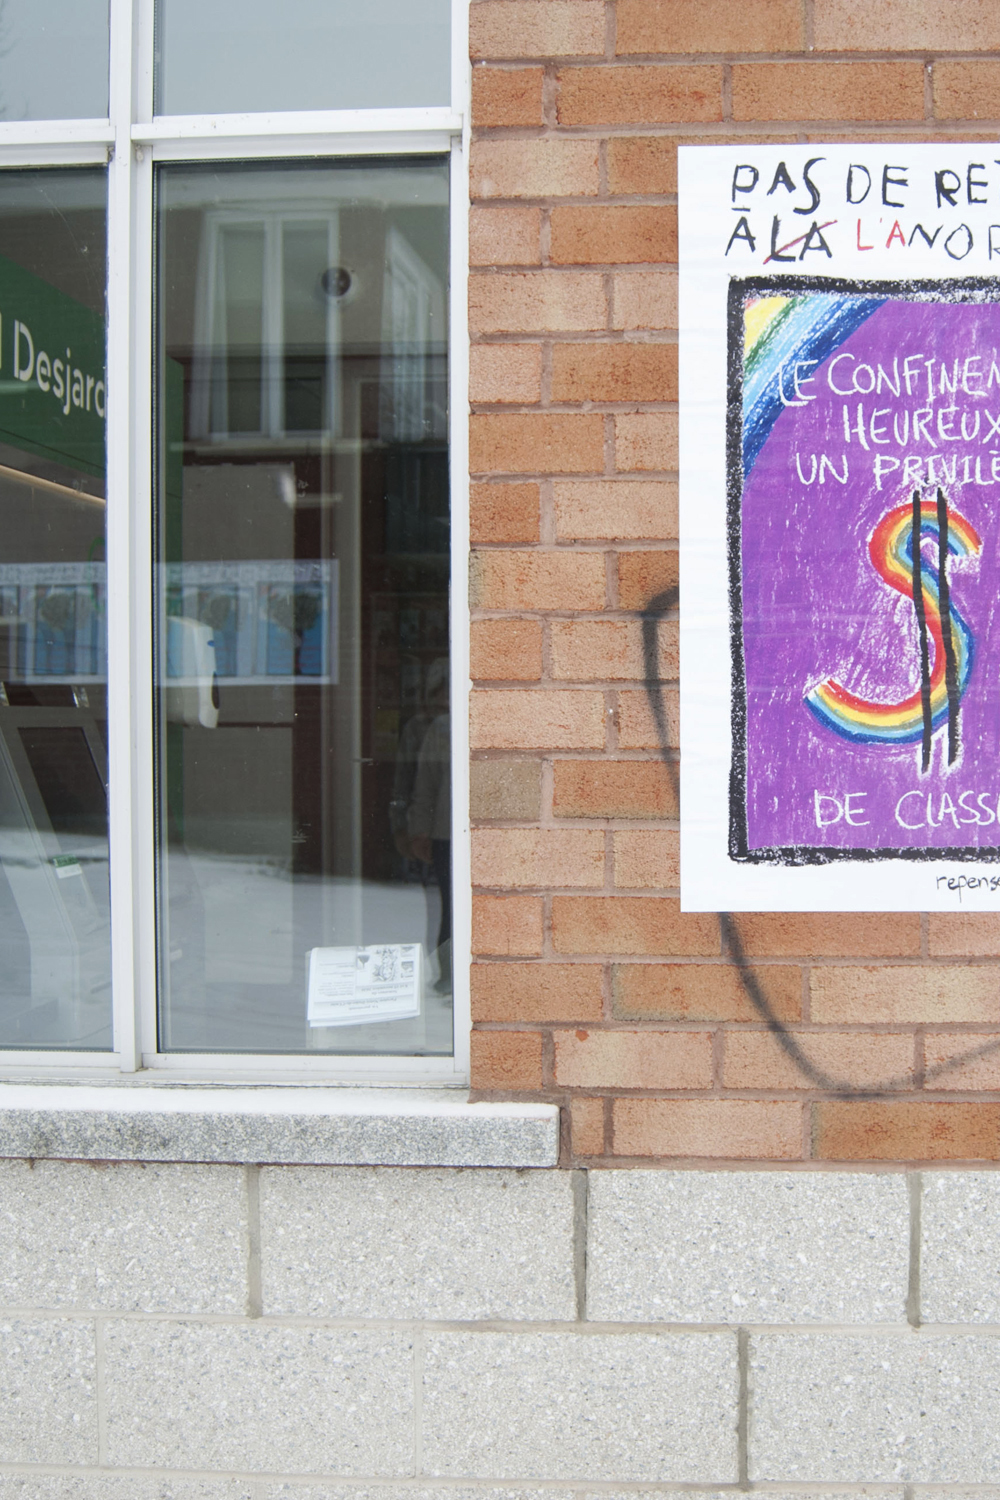 Desjard
PAS DE RET
À LA L'ANOR
LE CONFINEM
HEUREUX
UN PRIVILÈ
$
DE CLASS
repense